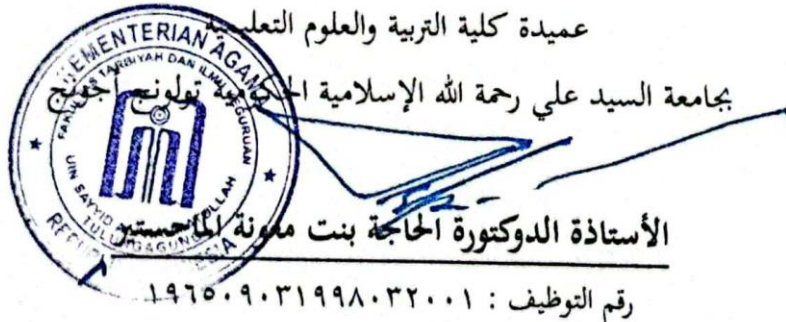 عميدة كلية التربية والعلوم التعليمية
بجامعة السيد علي رحمة الله الإسلامية الحكومية تولونج أجونج
KEMENTERIAN AGAMA
FAKULTAS TARBIYAH DAN ILMU KEGURUAN
UIN SAYYID ULLAH
TULUNGAGUNG
الأستاذة الدوكتورة الحاجة بنت معونة الماجستير
رقم التوظيف : ١٩٦٥٠٩٠٣١٩٩٨٠٣٢٠٠١